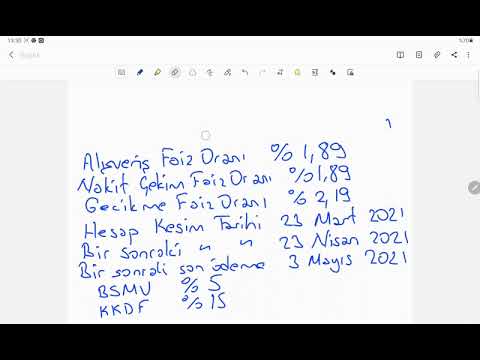 Başlık
1
Alışveriş Faiz Oranı %1,89
Nakit Çekim Faiz Oranı %1,89
Gecikme Faiz Oranı %2,19
Hesap Kesim Tarihi 23 Mart 2021
Bir sonraki " " 23 Nisan 2021
Bir sonraki son ödeme 3 Mayıs 2021
BSMV %5
KKDF %15